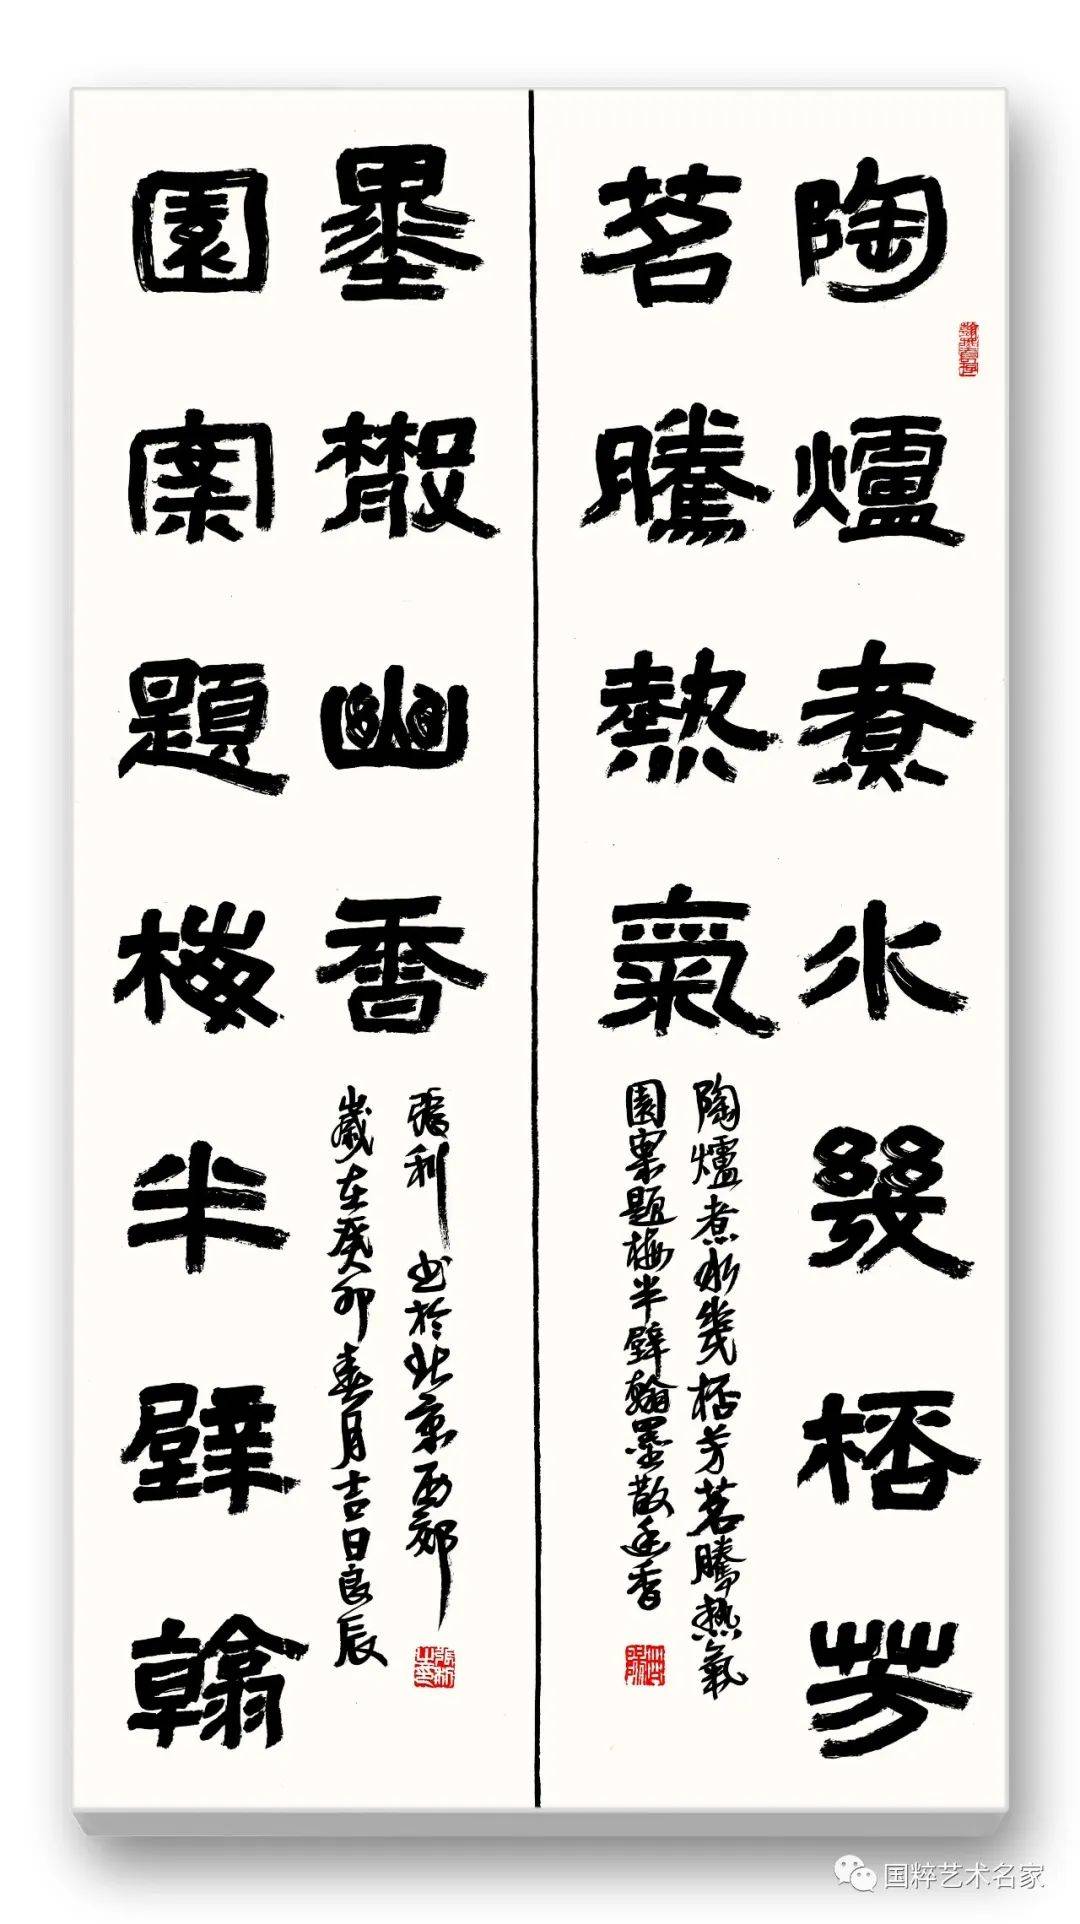 陶爐煮水幾桮芳
茗騰熱氣
陶爐煮水幾桮芳茗騰熱氣
園案題梅半壁翰墨散幽香
園案題梅半壁翰
墨散幽香
張利 书於北京西郊
歲在癸卯春月吉日良辰
国粹艺术名家